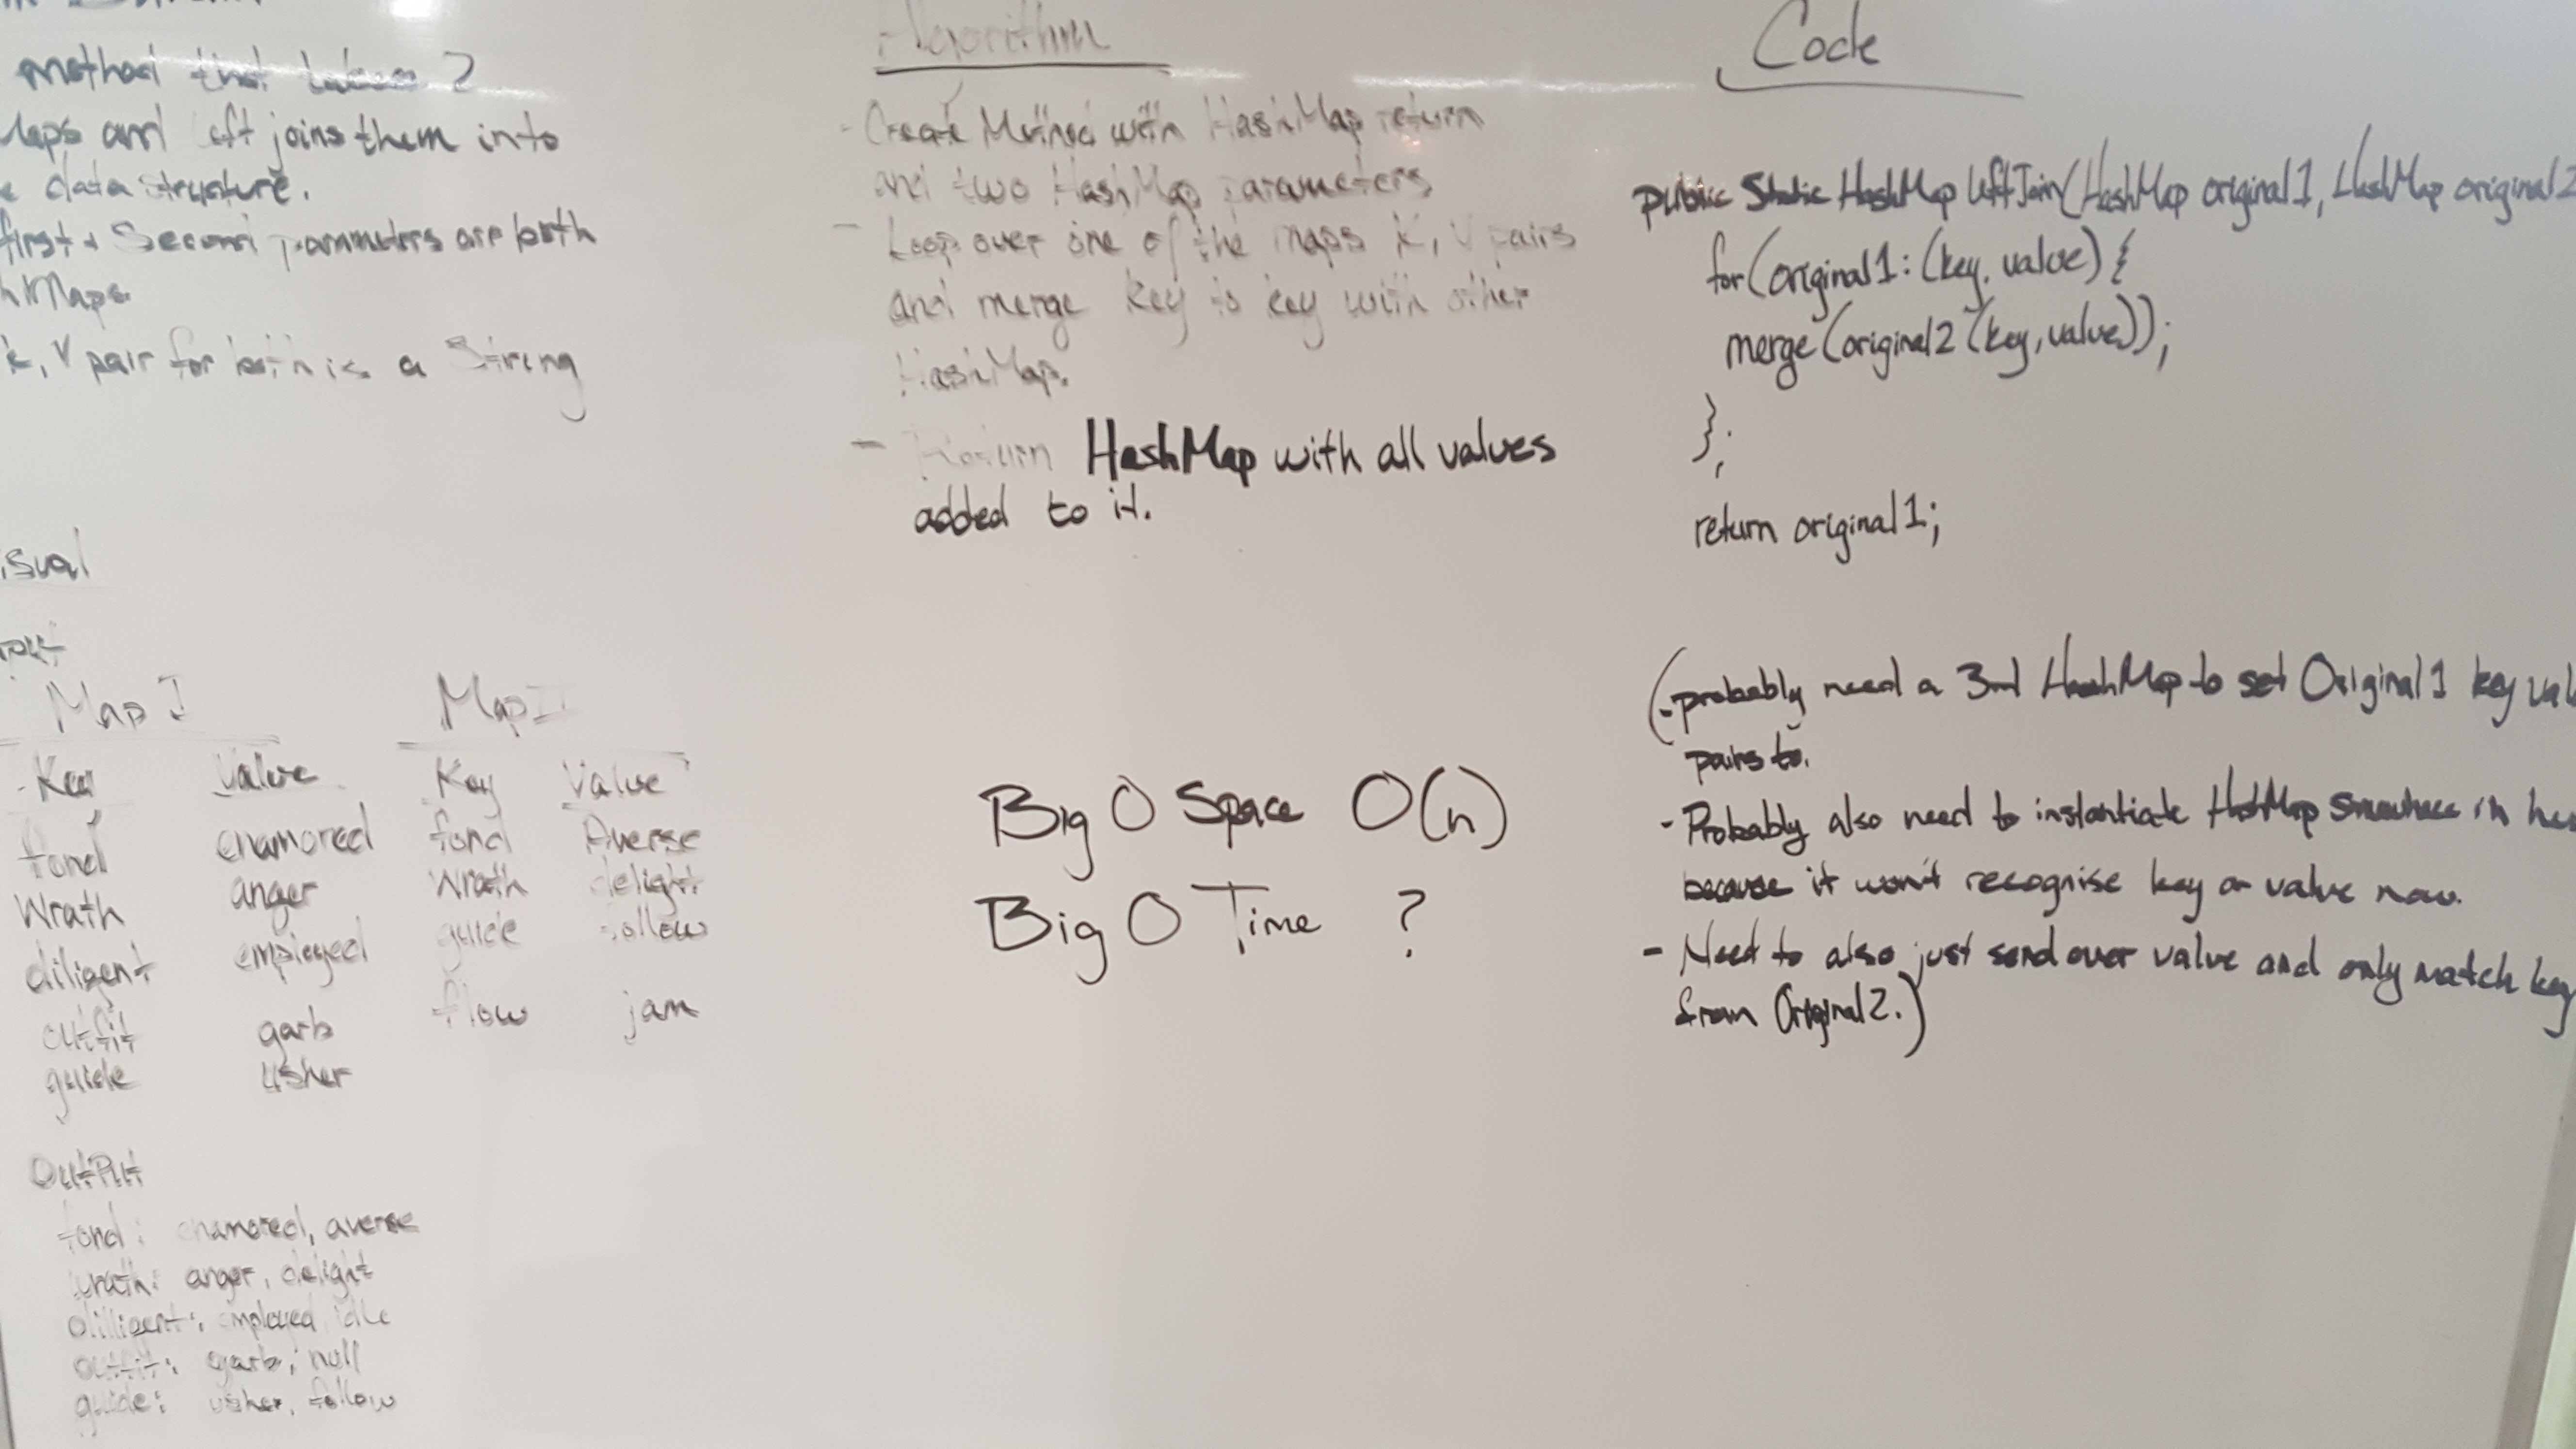 method that takes 2
Maps and left joins them into
e data structure.
first + Second parameters are both
hMaps
K, V pair for both is a String
isual
Map I
Key Value
fond enamored
Wrath anger
diligent employed
outfit garb
guide usher
Map II
Key Value
fond Averse
Wrath delight
guide follow
flow jam
OutPut
fond: enamored, averse
wrath: anger, delight
dilligent: employed idle
outfit: garb, null
guide: usher, follow
Algorithm
- Create Method with HashMap return
and two HashMap parameters
- Loop over one of the maps K, V pairs
and merge key to key with other
HashMap.
- Return HashMap with all values
added to it.
Big O Space O(n)
Big O Time ?
Code
public Static HashMap leftJoin(HashMap original1, HashMap original2
for(original1: (key, value) {
merge(original2 (key, value));
};
return original1;
(- probably need a 3rd HashMap to set Original1 key val
pairs to.
- Probably also need to instantiate HashMap somewhere in he
because it won't recognise key or value now.
- Need to also just send over value and only match key
from Original2.)